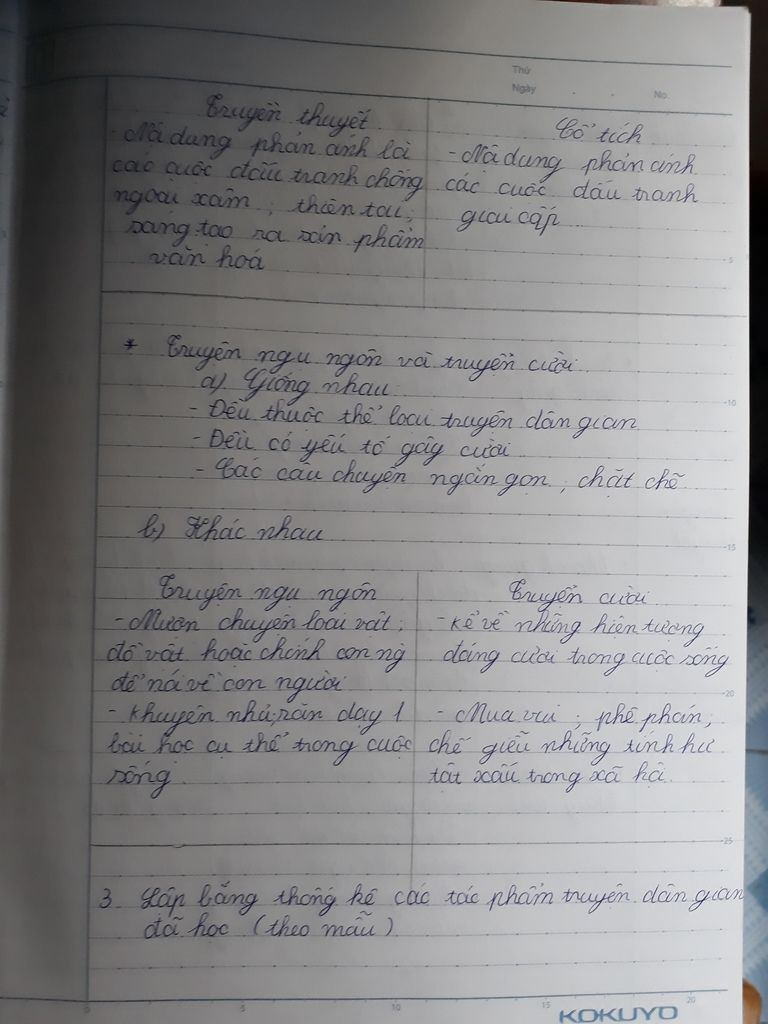 Thứ
Ngày . . No.
Truyền thuyết
- Nội dung phản ánh lại
các cuộc đấu tranh chống
ngoại xâm, thiên tai,
sáng tạo ra sản phẩm
văn hoá
Cổ tích
- Nội dung phản ánh
các cuộc đấu tranh
giai cấp
* Truyện ngụ ngôn và truyện cười
a) Giống nhau
- Đều thuộc thể loại truyện dân gian
- Đều có yếu tố gây cười
- Các câu chuyện ngắn gọn, chặt chẽ
b) Khác nhau
Truyện ngụ ngôn
- Mượn chuyện loài vật,
đồ vật hoặc chính con ng
để nói về con người
- Khuyên nhủ, răn dạy 1
bài học cụ thể trong cuộc
sống
Truyện cười
- Kể về những hiện tượng
đáng cười trong cuộc sống
- Mua vui, phê phán,
chế giễu những tính hư
tật xấu trong xã hội
3. Lập bảng thống kê các tác phẩm truyện dân gian
đã học (theo mẫu)
5
10
15
20
25
0 5 10 15 20
KOKUYO